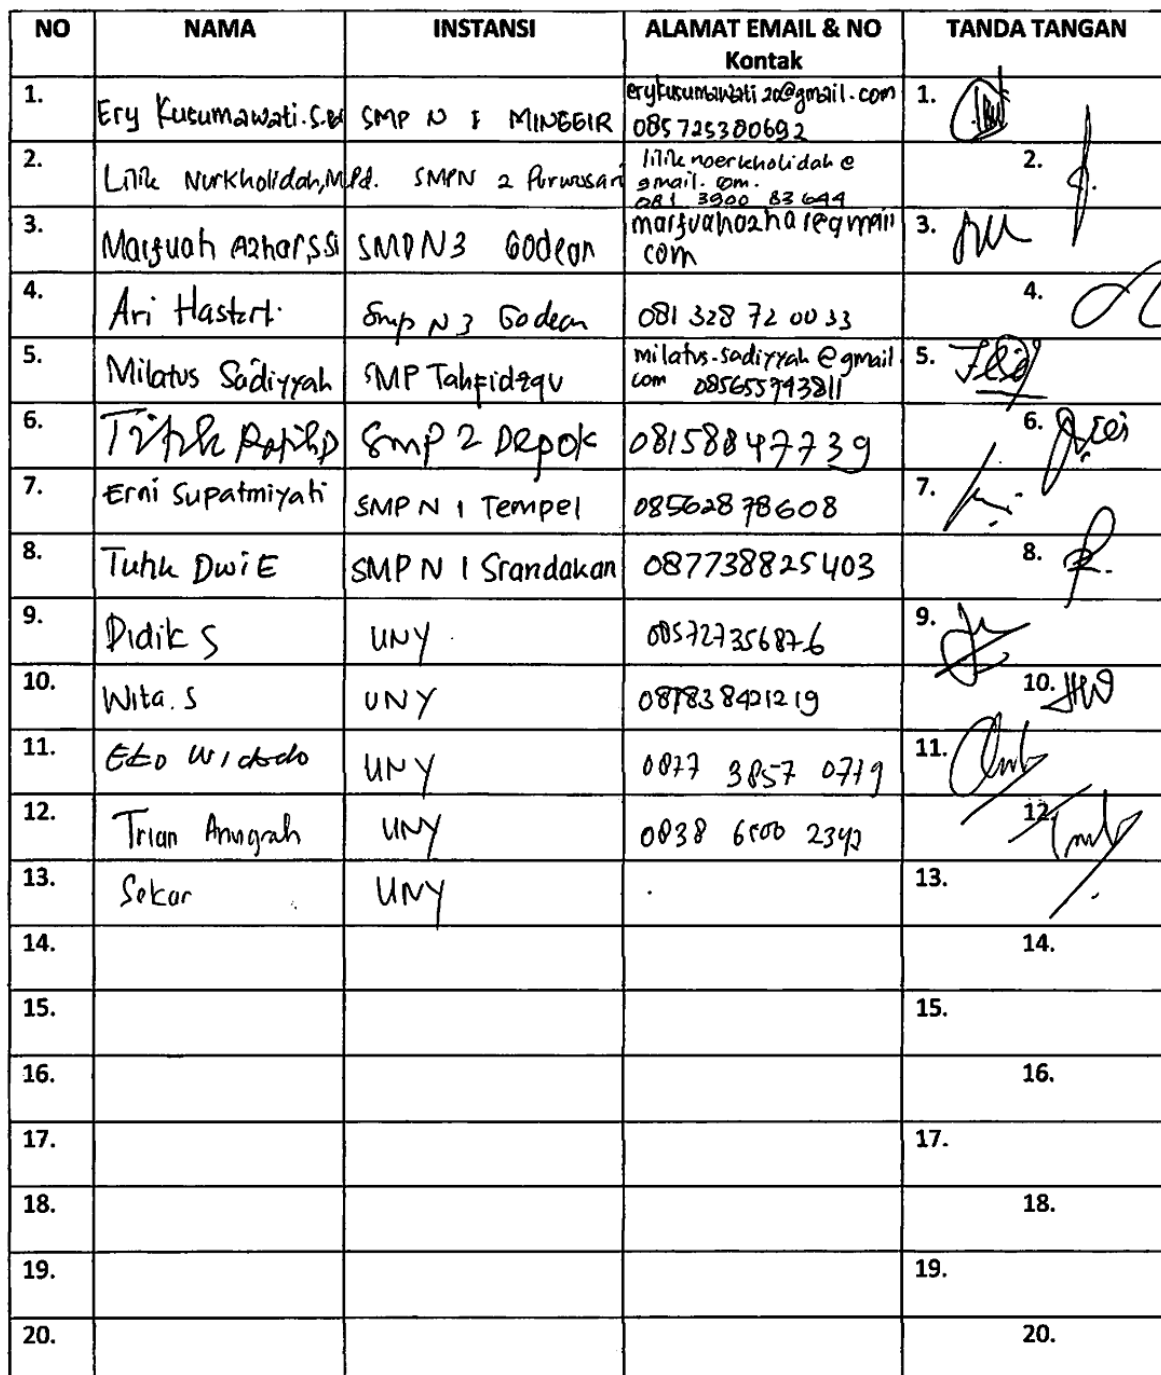 NO NAMA INSTANSI ALAMAT EMAIL & NO Kontak TANDA TANGAN
1. Ery Kusumawati.S.Pd SMP N 1 MINGGIR erykusumawati20@gmail.com 085725380692 1.
2. Lilik Nurkholidah,M.Pd. SMPN 2 Purwosari lilik noerkholidah@gmail.com. 081 3900 83 644 2.
3. Marfuah Azhar,S.Si SMPN3 Godean marfuahazhar@gmail com 3.
4. Ari Hastuti. Smp N 3 Godean 081 328 72 00 33 4.
5. Milatus Sadiyyah SMP Tahfidzqu milatus.sadiyyah@gmail com 085655743811 5.
6. Titik SMP 2 Depok 08158847739 6.
7. Erni Supatmiyati SMP N 1 Tempel 08562878608 7.
8. Tutik Dwi E SMP N 1 Srandakan 087738825403 8.
9. Didik S UNY 085727356876 9.
10. Wita. S UNY 087838421219 10.
11. Eko Widodo UNY 0877 3857 0719 11.
12. Trian Anugrah UNY 0838 6500 2342 12.
13. Sekar UNY 13.
14. 14.
15. 15.
16. 16.
17. 17.
18. 18.
19. 19.
20. 20.